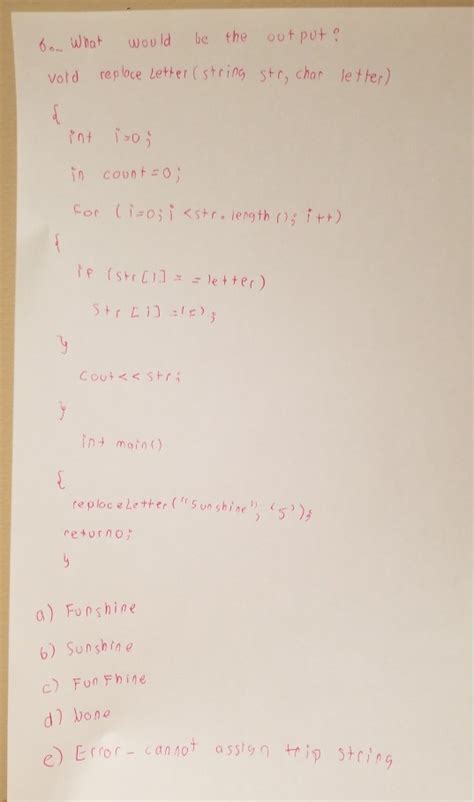 6. What would be the output?
void replace Letter (string str, char letter)
{
int i=0;
in count=0;
for (i=0; i <str.length (); i++)
{
if (str[i] = = letter)
str [i] =
}
cout<< str;
}
int main()
{
replaceLetter("Sunshine", 's');
return0;
}
a) Funshine
b) Sunshine
c) FunFhine
d) None
e) Error - cannot assign trip string